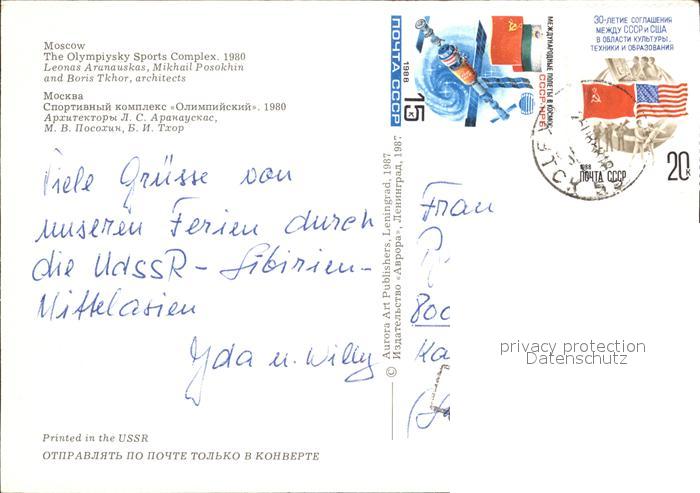 Moscow
The Olympiysky Sports Complex. 1980
Leonas Aranauskas, Mikhail Posokhin
and Boris Tkhor, architects
Москва
Спортивный комплекс «Олимпийский». 1980
Архитекторы Л. С. Аранаускас,
М. В. Посохин, Б. И. Тхор
Viele Grüsse von
unseren Ferien durch
die UdSSR - Sibirien-
Mittelasien
Yda u. Willy
Printed in the USSR
ОТПРАВЛЯТЬ ПО ПОЧТЕ ТОЛЬКО В КОНВЕРТЕ
© Aurora Art Publishers, Leningrad, 1987
Издательство «Аврора», Ленинград, 1987
ПОЧТА СССР
1988
15к
МЕЖДУНАРОДНЫЕ ПОЛЕТЫ В КОСМОС
СССР-НРБ
30-ЛЕТИЕ СОГЛАШЕНИЯ
МЕЖДУ СССР И США
В ОБЛАСТИ КУЛЬТУРЫ,
ТЕХНИКИ И ОБРАЗОВАНИЯ
1988
ПОЧТА СССР
20к
Frau
800
Ka
privacy protection
Datenschutz